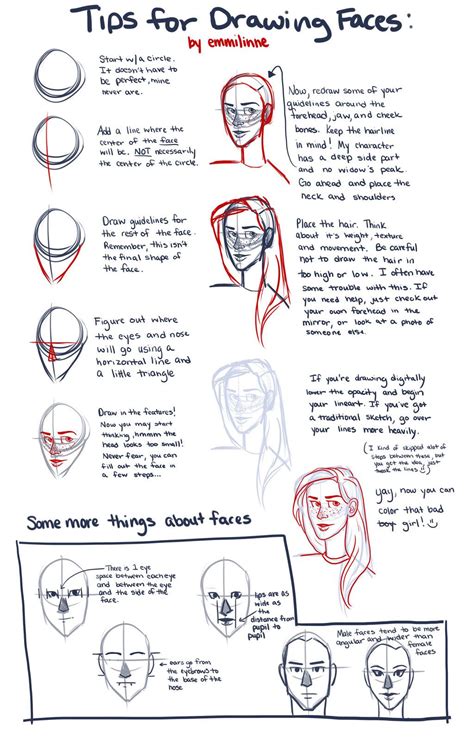 Tips for Drawing Faces:
by emmilinne
Start w/a circle.
It doesn't have to
be perfect, mine
never are.
Add a line where the
center of the face
will be. NOT necessarily
the center of the circle.
Draw guidelines for
the rest of the face.
Remember, this isn't
the final shape of
the face.
Figure out where
the eyes and nose
will go using a
horizontal line and
a little triangle
Draw in the features!
Now you may start
thinking, hmmmm the
head looks too small!
Never fear, you can
fill out the face in
a few steps...
Now, redraw some of your
guidelines around the
forehead, jaw, and cheek
bones. Keep the hairline
in mind! My character
has a deep side part
and no widow's peak.
Go ahead and place the
neck and shoulders
Place the hair. Think
about it's weight, texture
and movement. Be careful
not to draw the hair in
too high or low. I often have
some trouble with this. If
you need help, just check out
your own forehead in the
mirror, or look at a photo of
someone else.
If you're drawing digitally
lower the opacity and begin
your lineart. If you've got
a traditional sketch, go over
your lines more heavily.
(I kind of skipped alot of
steps between these, but
you get the idea, just
these lines
yay, now you can
color that bad
boy girl!
Some more things about faces
There is 1 eye
space between each eye
and between the eye
and the side of the
face.
lips are as
wide as
the
distance from
pupil to
pupil
ears go from
the eyebrows to
the base of the
nose
Male faces tend to be more
angular and wider than
female
faces